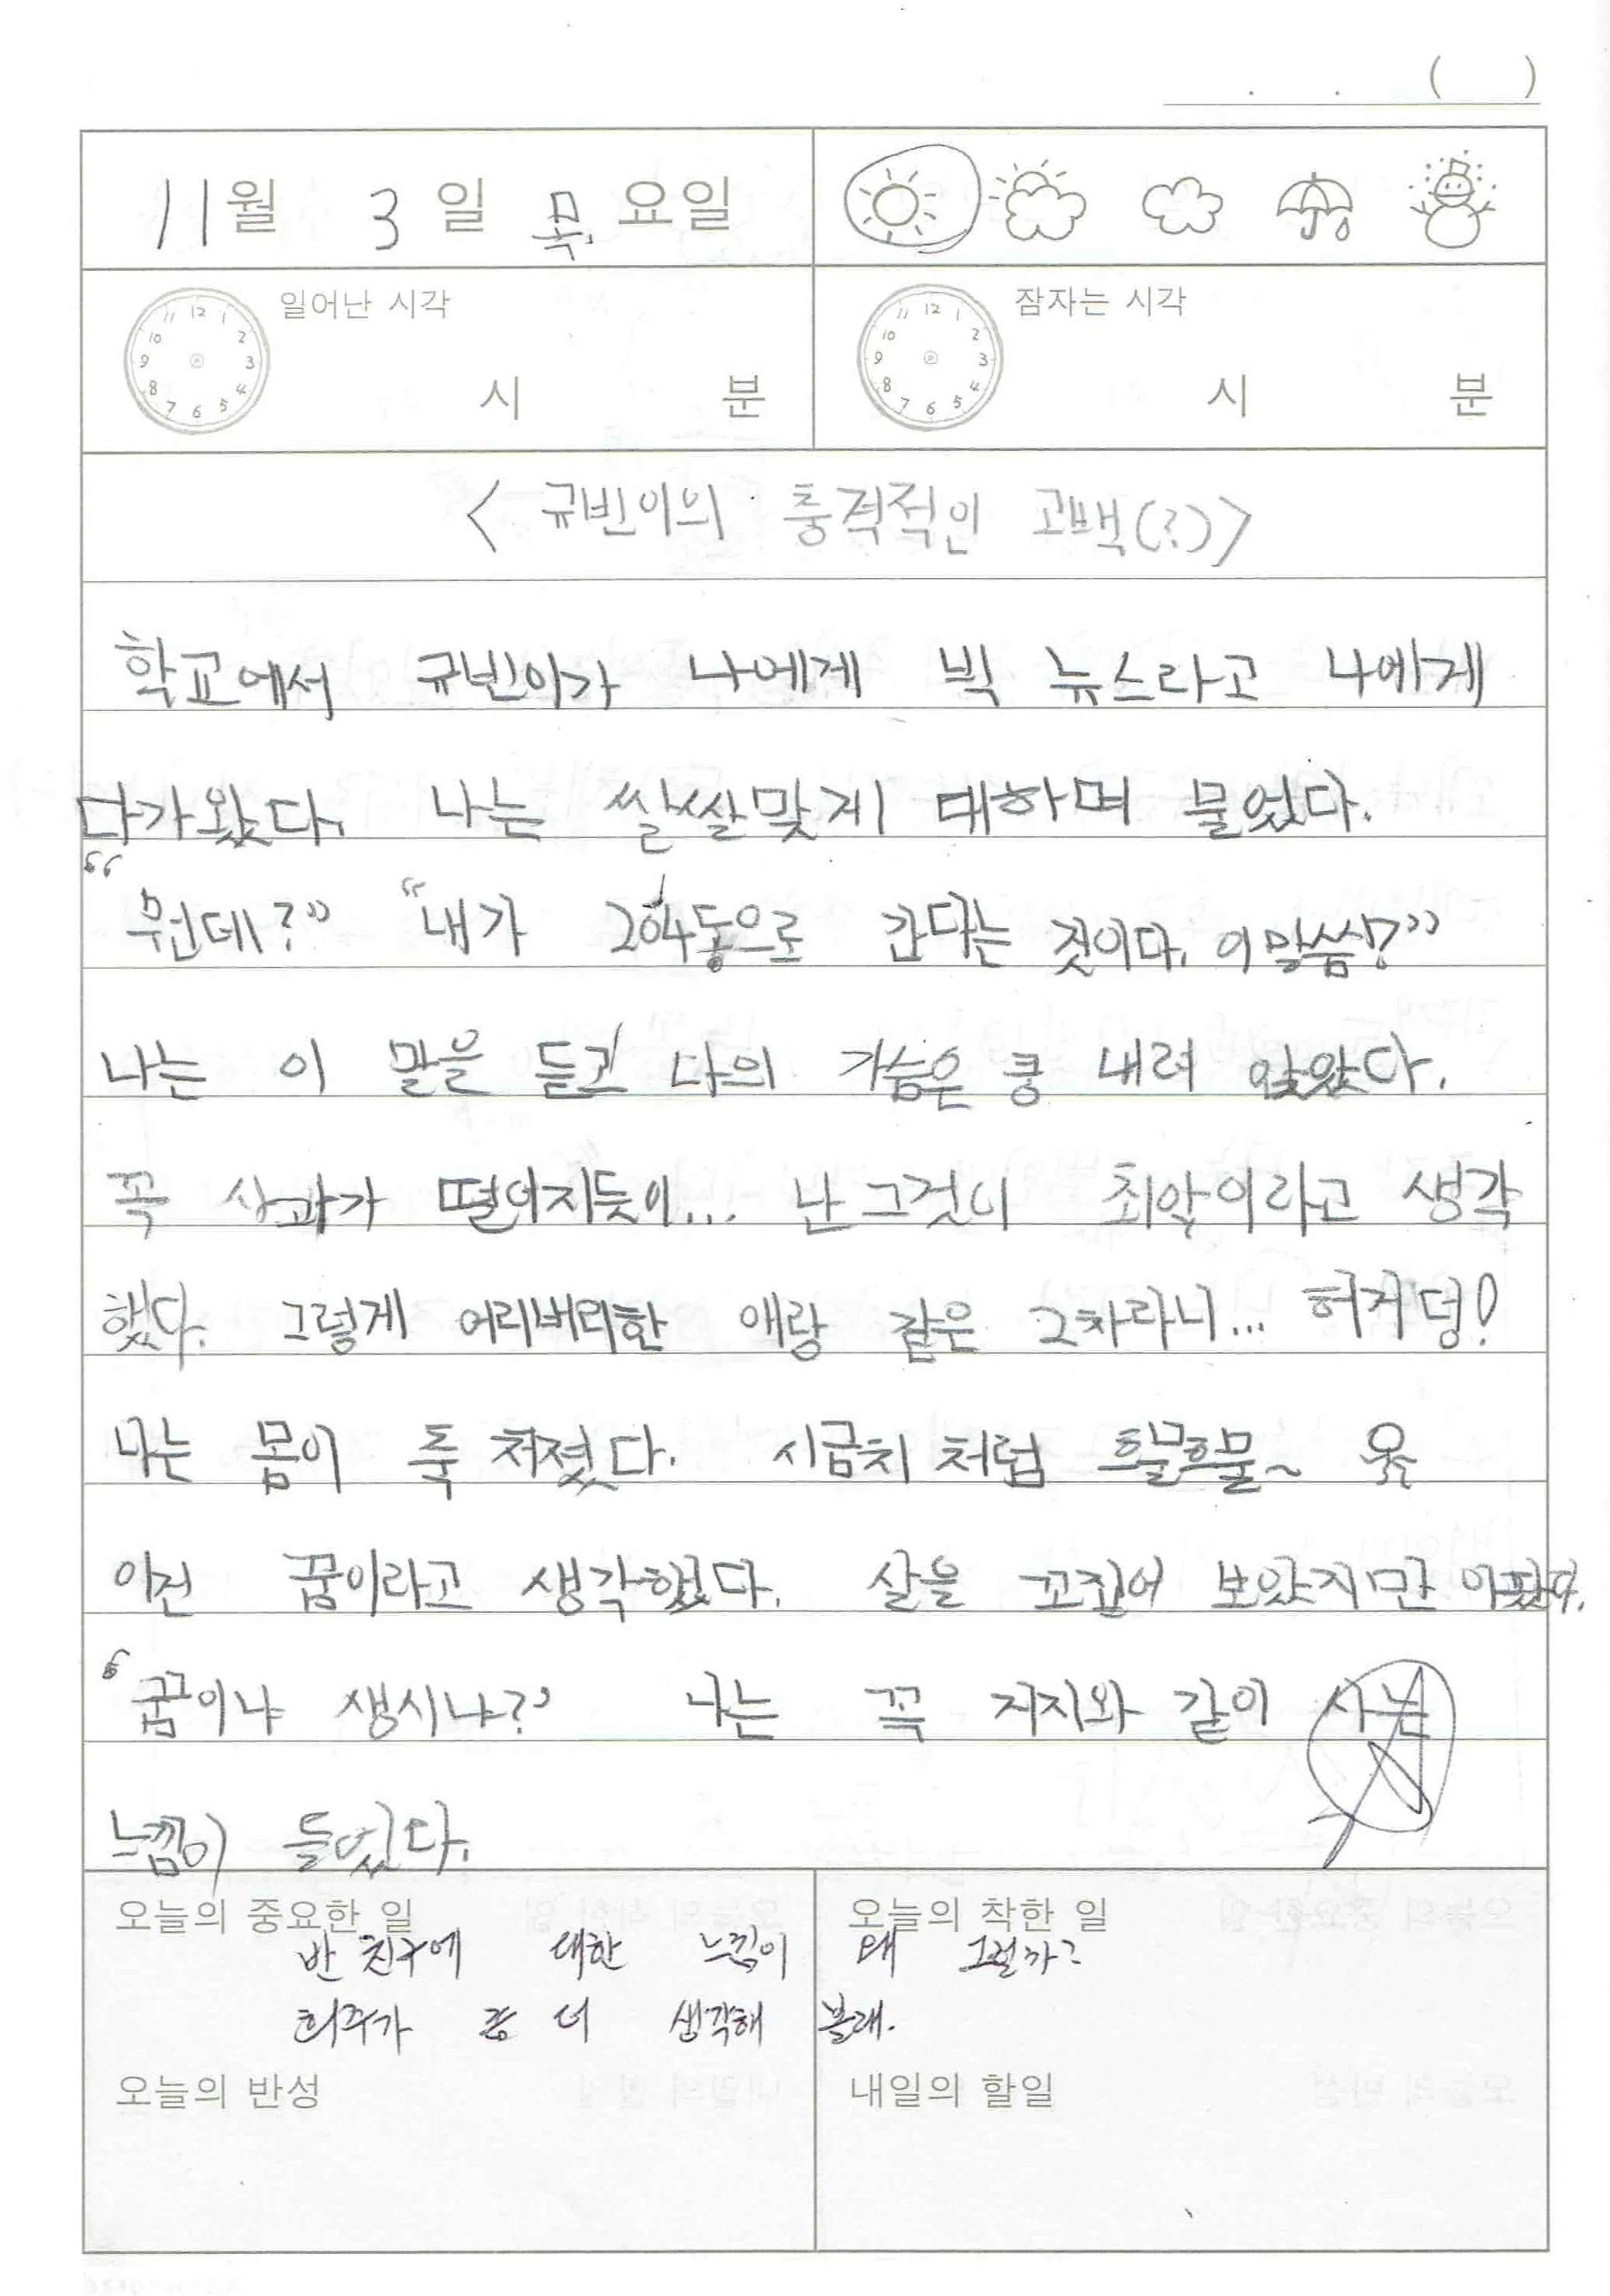 . . ( )
11월 3일 목요일
일어난 시각 잠자는 시각
시 분 시 분
< 규빈이의 충격적인 고백(?)>
학교에서 규빈이가 나에게 빅 뉴스라고 나에게
다가왔다. 나는 쌀쌀맞게 대하며 물었다.
"뭔데?" "내가 204동으로 간다는 것이다. 이말씀!?"
나는 이 말을 듣고 나의 가슴은 쿵 내려 앉았다.
꼭 사과가 떨어지듯이... 난 그것이 최악이라고 생각
했다. 그렇게 어리버리한 애랑 같은 2차라니... 허거덩!
나는 몸이 축 처졌다. 시금치 처럼 흐물흐물~
이건 꿈이라고 생각했다. 살을 꼬집어 보았지만 아팠다.
'꿈이냐 생시냐?' 나는 꼭 거지와 같이 사는
느낌이 들었다.
오늘의 중요한 일 오늘의 착한 일
반 친구에 대한 느낌이 왜 그럴까?
희주가 좀 더 생각해 볼래.
오늘의 반성 내일의 할일